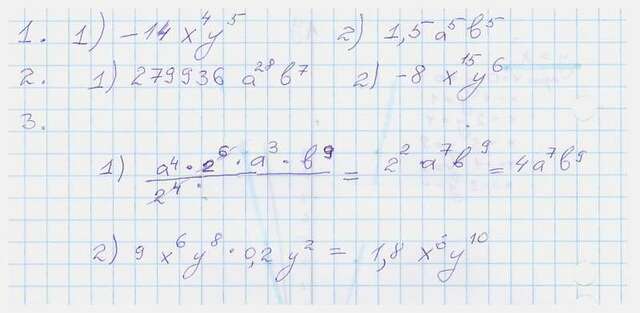 1. 1) -14 x⁴y⁵ 2) 1,5 a⁵b⁵
2. 1) 279936 a²⁸b⁷ 2) -8 x¹⁵y⁶
3.
1) (a⁴ · 2⁶ · a³ · b⁹) / 2⁴ = 2² · a⁷b⁹ = 4a⁷b⁹
2) 9 x⁶y⁸ · 0,2 y² = 1,8 x⁶y¹⁰